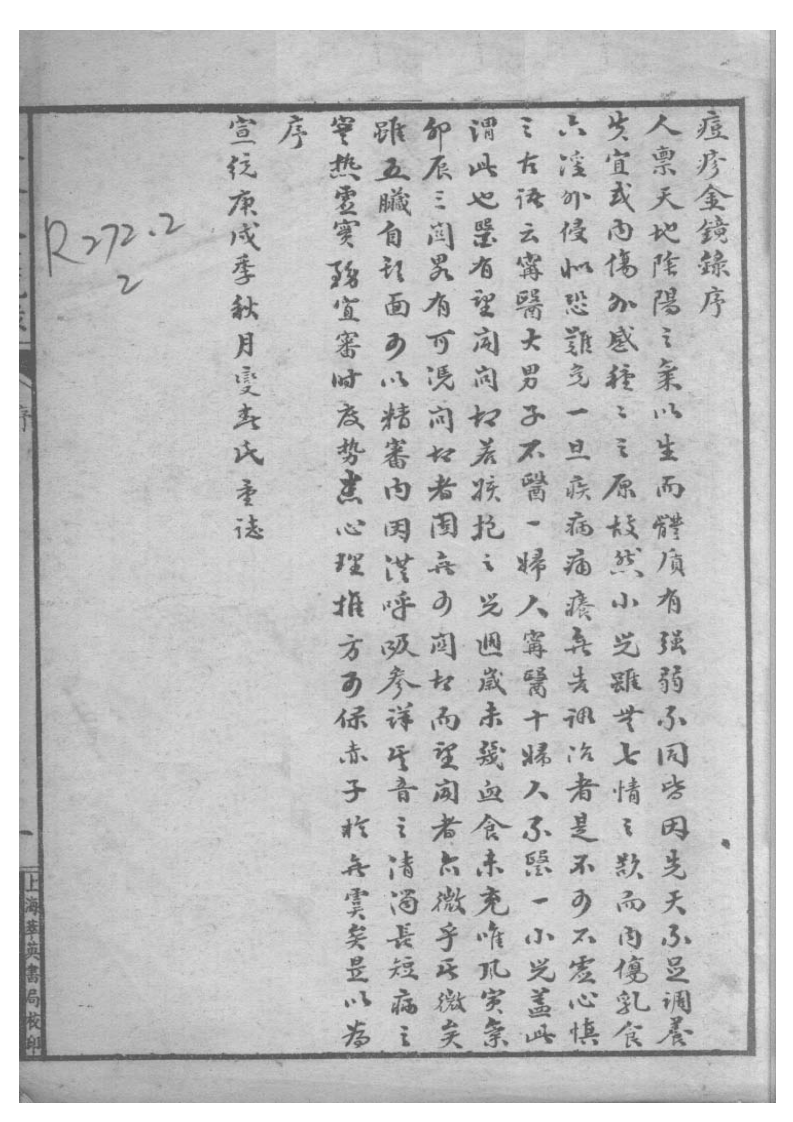 痘疹金鏡錄序
人稟天地陰陽之氣以生而體質有强弱不同皆因先天不足調養
失宜或內傷外感種〻之原故然小兒雖無七情之歎而內傷乳食
六淫外侵似恐難免一旦疾病痛癢無告調治者是不可不虛心慎
之古語云寗醫大男子不醫一婦人寗醫十婦人不醫一小兒蓋此
謂此也醫有望聞問切若孩抱之兒週歲未幾血食未充唯風寅
卯辰三關畧有可凴問切者固無可問切而望聞者亦微乎其微矣
雖五臟自部面可以精審內因從呼吸參詳其音之清濁長短病之
寒熱虛實務宜審时度势悉心理推方可保赤子於無虞矣是以為
序
宣统庚戌季秋月燮春氏重誌
R272.2
2
序
一
上海萃英書局校印